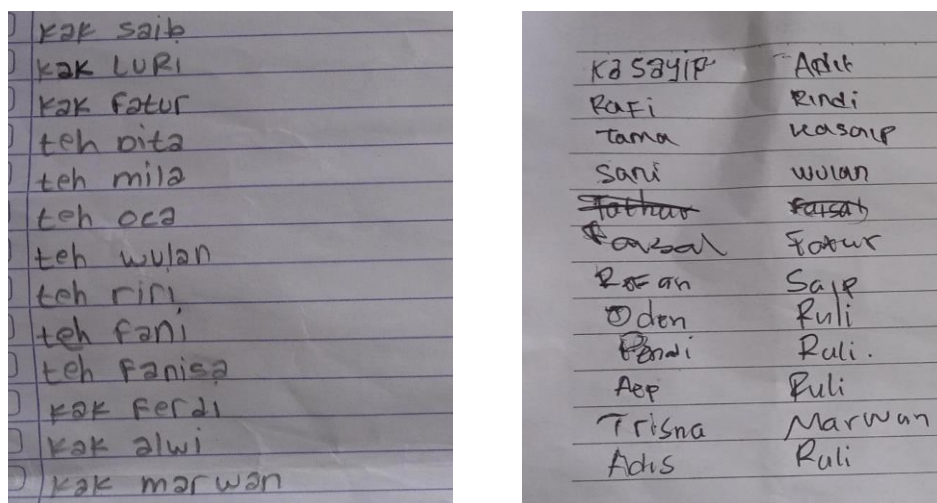 kak saib
kak LURI
kak fatur
teh dita
teh mila
teh oca
teh wulan
teh riri
teh fani
teh Fanisa
kak Ferdi
kak alwi
kak marwan
Ka sayip Adit
Rafi Rindi
Tama kasaip
Sani wulan
Fathur Faisal
Faisal Fatur
Saip
Oden Ruli
Ruli.
Aep Ruli
Trisna Marwan
Adis Ruli